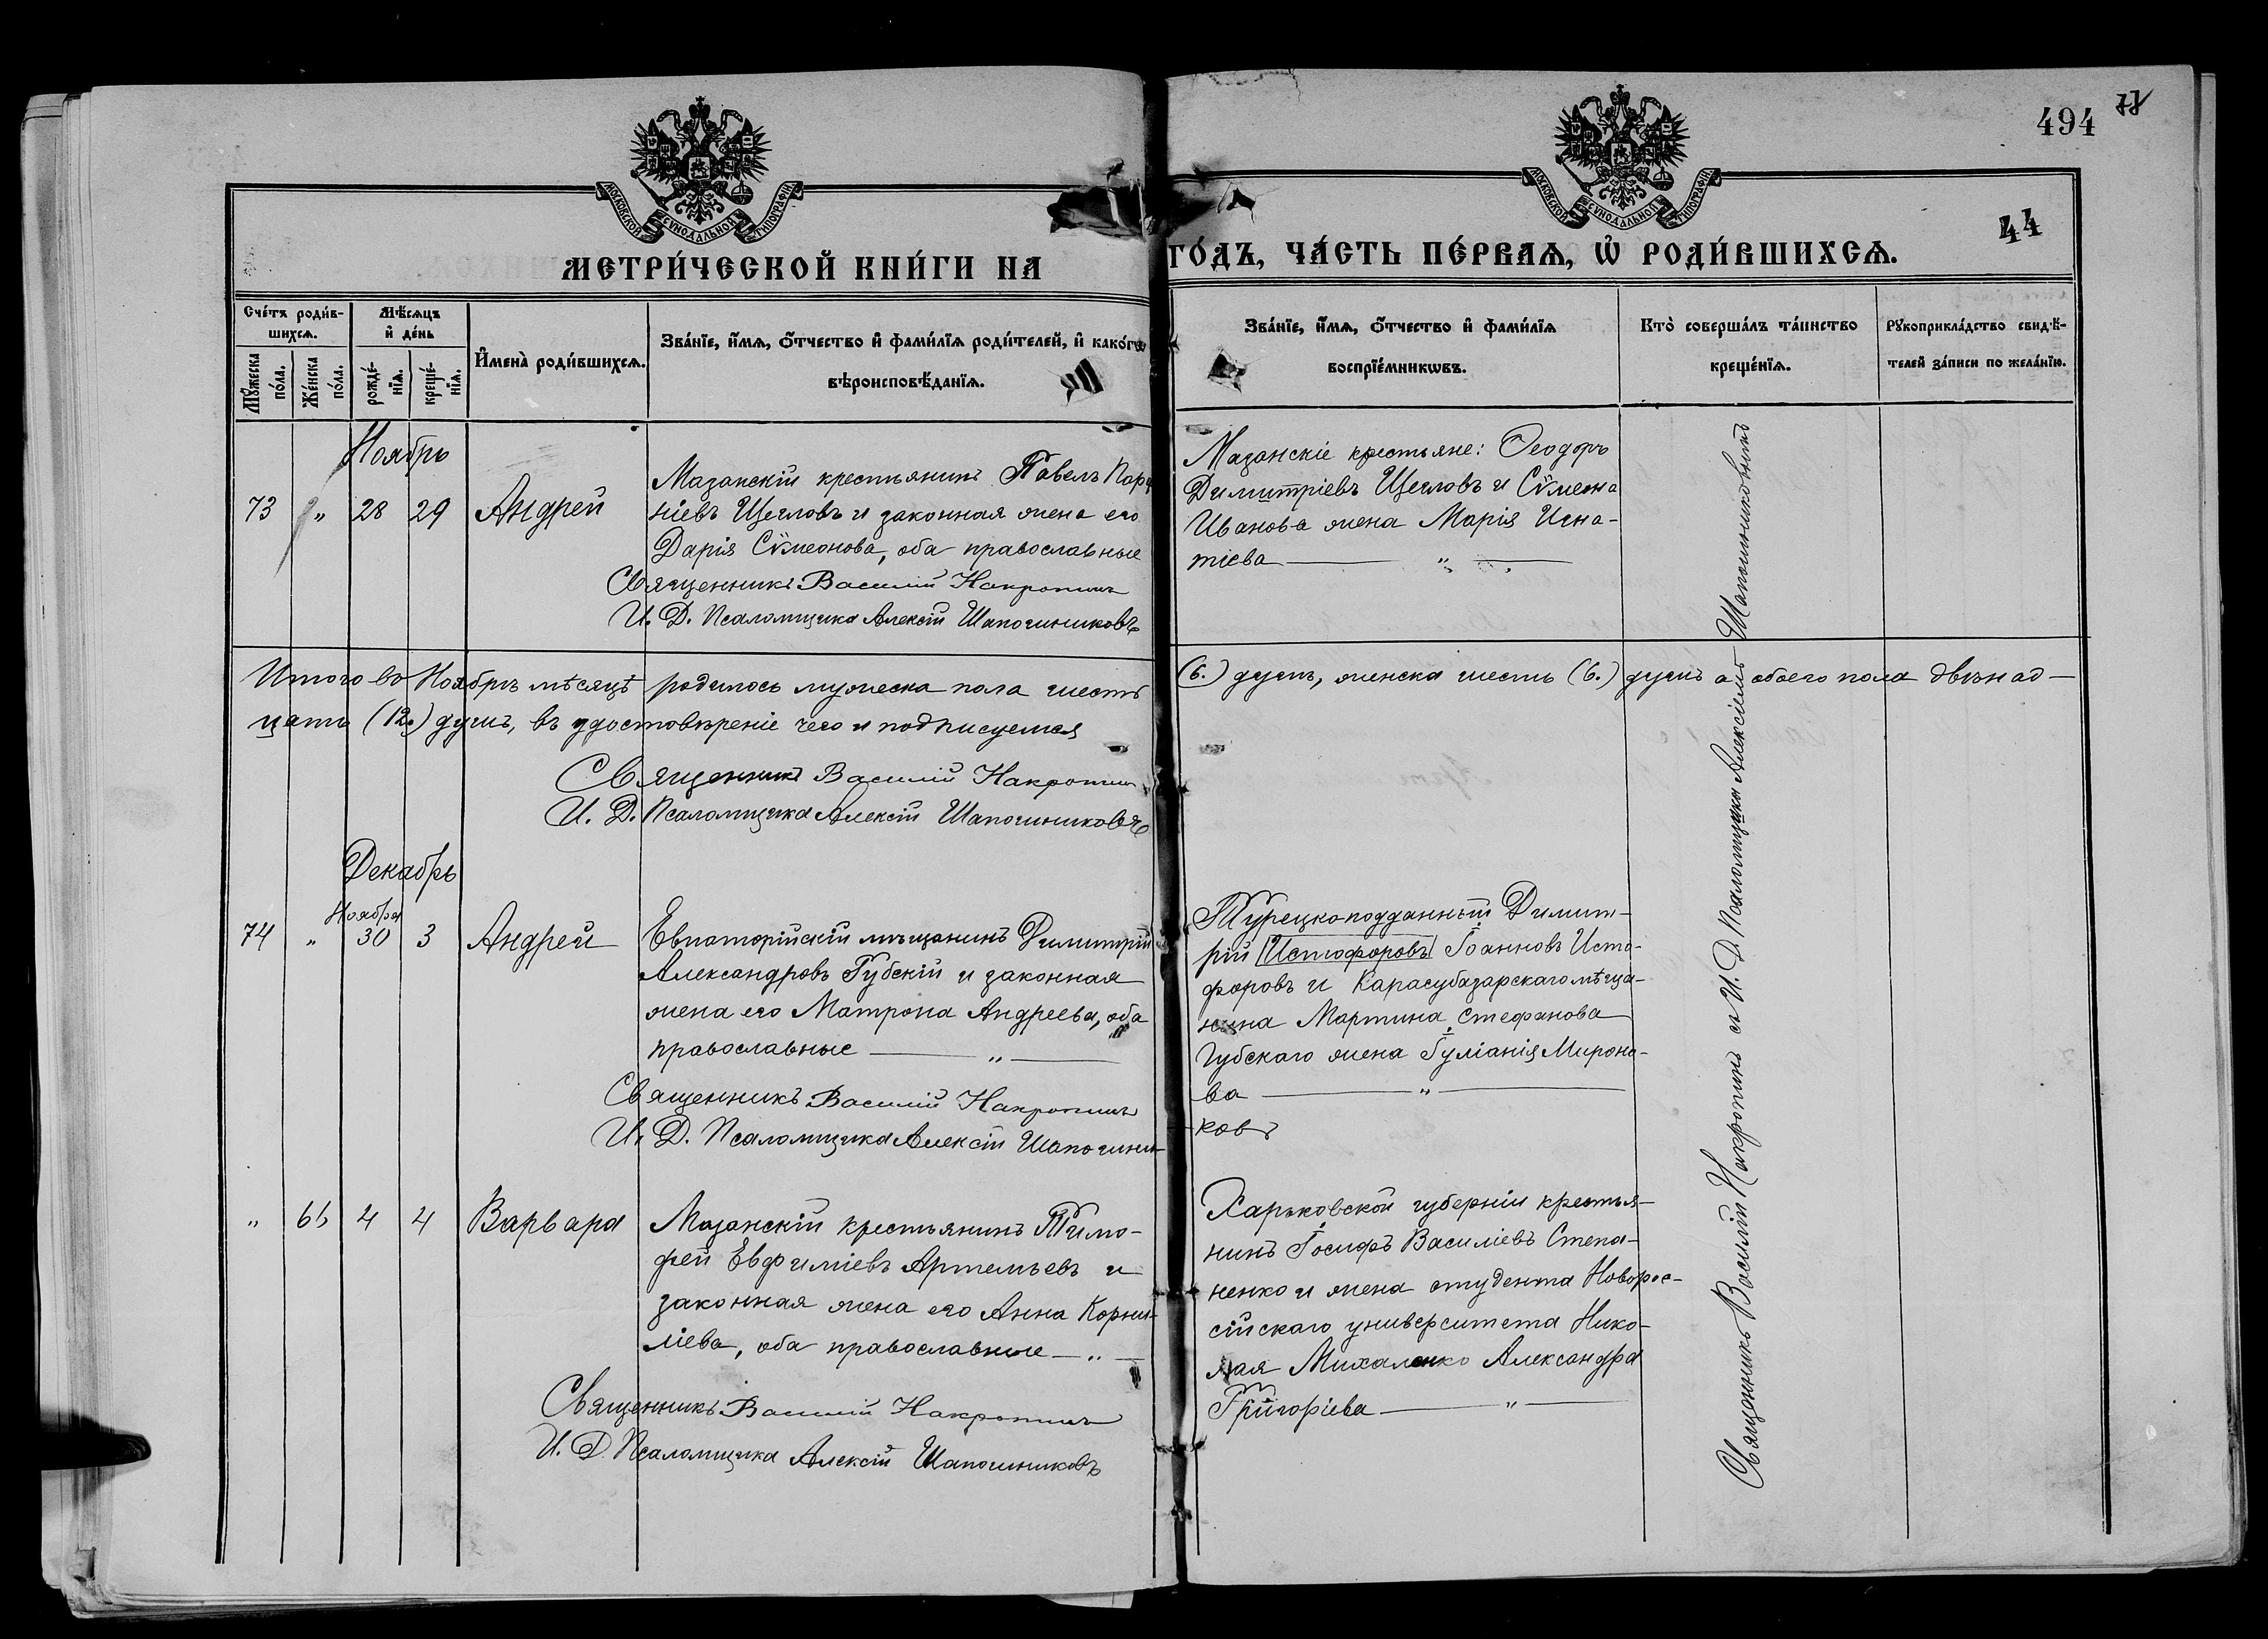 494 77
44
МОСКОВСКОЙ СУНОДАЛЬНОЙ ТИПОГРАФІИ
МОСКОВСКОЙ СУНОДАЛЬНОЙ ТИПОГРАФІИ
МЕТРИ́ЧЕСКОЙ КНИ́ГИ НА ГО́ДЪ, ЧА́СТЬ ПЕ́РВАѦ, Ѡ҆ РОДИ́ВШИХСѦ.
Сче́тъ роди́в-
шихсѧ.
Мꙋ́жеска по́ла.
Же́нска по́ла.
Мѣ́сѧцъ
и҆ де́нь
рожде́-
нїѧ.
креще́-
нїѧ.
И҆мена̀ роди́вшихсѧ.
Зва́нїе, и҆́мѧ, ѻ҆́тчество и҆ фами́лїѧ роди́телей, и҆ како́гѡ
вѣроисповѣ́данїѧ.
Зва́нїе, и҆́мѧ, ѻ҆́тчество и҆ фами́лїѧ
воспрїе́мникѡвъ.
Кто̀ соверша́лъ та́инство
креще́нїѧ.
Рꙋкоприкла́дство свидѣ́-
телей за́писи по жела́нїю.
Ноябрь
73 „ 28 29 Андрей
Мазанскій крестьянинъ Павелъ Пар
ніевъ Щегловъ и законная жена его
Дарія Сѵмеонова, оба православные
Священникъ Василій Накропинъ
И. Д. Псаломщика Алексій Шапошниковъ
Мазанскіе крестьяне: Ѳеодоръ
Димитріевъ Щегловъ и Сѵмеона
Иванова жена Марія Игна-
тіева — „ —
Итого въ Ноябрѣ мѣсяцѣ родилось мужеска пола шесть (6.) душъ, женска шесть (6.) душъ а обоего пола двѣнад-
цать (12.) душъ, въ удостовѣреніе чего и подписуемся
Священникъ Василій Накропинъ
И. Д. Псаломщика Алексій Шапошниковъ
Декабрь
Ноября
74 „ 30 3 Андрей
Евпаторійскій мѣщанинъ Димитрій
Александровъ Губскій и законная
жена его Матрона Андреева, оба
православные — „ —
Священникъ Василій Накропинъ
И. Д. Псаломщика Алексій Шапошни-
ковъ
Турецкоподданный Димит-
рій Истофоровъ Іоанновъ Исто-
форовъ и Карасубазарскаго мѣща-
нина Мартина Стефанова
Губскаго жена Іуліанія Мироно-
ва — „ —
„ 65 4 4 Варвара
Мазанскій крестьянинъ Тимо-
фей Евфиміевъ Артемьевъ и
законная жена его Анна Корни-
ліева, оба православные — „ —
Священникъ Василій Накропинъ
И. Д. Псаломщика Алексій Шапошниковъ
Харьковской губерніи крестья-
нинъ Іосифъ Василіевъ Степа-
ненко и жена студента Новорос-
сійскаго университета Нико-
лая Михаленко Александра
Григоріева — „ —
Священникъ Василій Накропинъ съ И. Д. Псаломщика Алексіемъ Шапошниковымъ